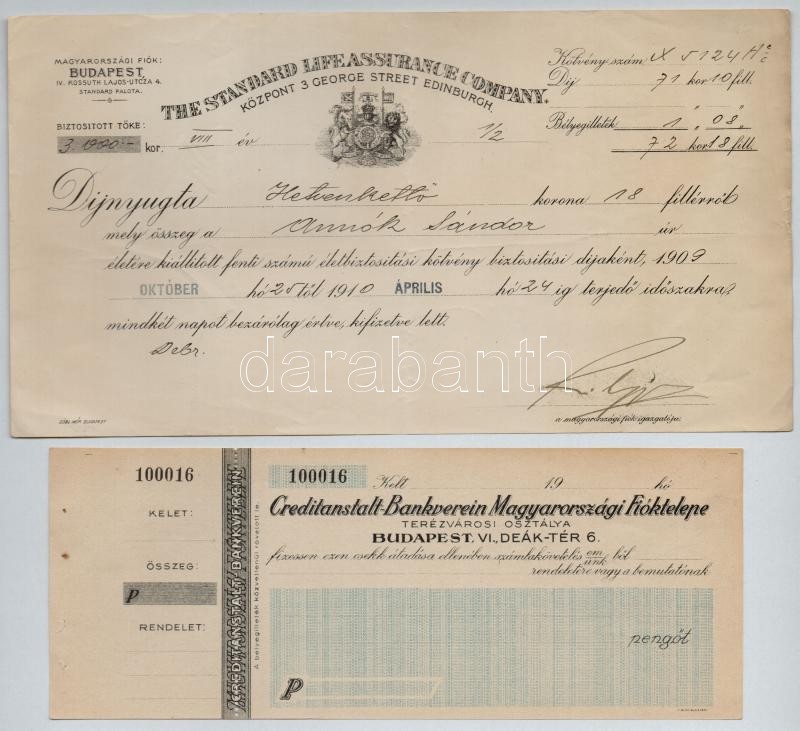 MAGYARORSZÁGI FIÓK:
BUDAPEST,
IV. KOSSUTH LAJOS-UTCZA 4.
STANDARD PALOTA.
THE STANDARD LIFE ASSURANCE COMPANY.
KÖZPONT 3 GEORGE STREET EDINBURGH.
Kötvény szám X 5124 H
Díj 71 kor 10 fill.
Bélyegilleték 1 „ 08 „
72 kor 18 fill.
BIZTOSITOTT TŐKE:
3.000 kor. VIII év 1/2
Dijnyugta Hetvenkettő korona 18 fillérről
mely összeg a Annók Sándor úr
életére kiállított fenti számú életbiztositási kötvény biztositási dijaként, 1909
OKTÓBER hó 25 től 1910 ÁPRILIS hó 24 ig terjedő időszakra,
mindkét napot bezárólag értve, kifizetve lett.
Debr.
a magyarországi fiók igazgatója.
darabanth
100016
KELET:
ÖSSZEG:
P
RENDELET:
CREDITANSTALT-BANKVEREIN
A bélyegilleték közvetlenül rovatott le.
100016 Kelt 19 hó
Creditanstalt-Bankverein Magyarországi Fióktelepe
TERÉZVÁROSI OSZTÁLYA
BUDAPEST, VI., DEÁK-TÉR 6.
fizessen ezen csekk átadása ellenében számlakövetelés em/ünk ből
rendeletére vagy a bemutatónak
pengőt
P